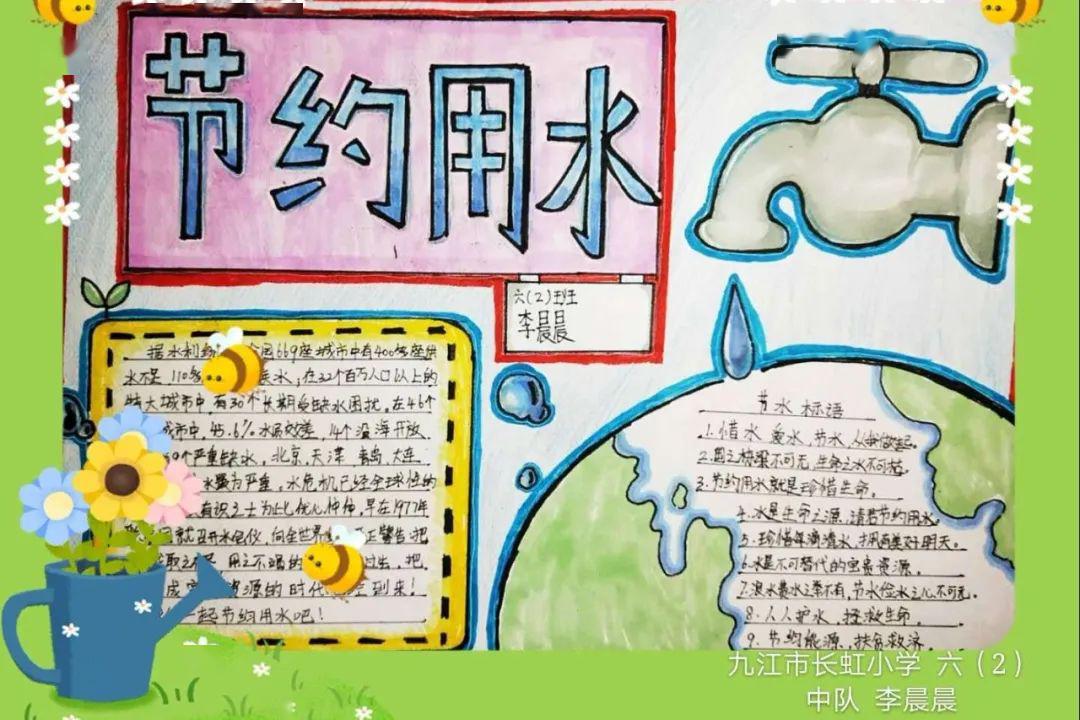 节约用水
六(2)班
李晨晨
据水利 全国669座城市中有400多座供
水不足 110多 缺水，在32个百万人口以上的
特大城市中，有30个长期受缺水困扰。在46个
城市中，45.6%水质较差，14个沿海开放
9个严重缺水，北京、天津、青岛、大连
水最为严重，水危机已经全球性的
有识之士为此忧心忡忡，早在1977年
就召开水会议，向全世界 正警告：把
取之不尽、用之不竭的 过出，把
成 资源的时代 到来！
一起节约用水吧！
节水标语
1.惜水、爱水，节水，从我做起。
2.国之栋梁不可无，生命之水不可枯。
3.节约用水就是珍惜生命。
4.水是生命之源，请君节约用水。
5.珍惜每滴清水，拥有美好明天。
6.水是不可替代的宝贵资源。
7.浪水费水之举不有，节水俭水之心不可无。
8.人人护水，拯救生命。
9.节约能源，扶贫救济。
九江市长虹小学 六（2）
中队 李晨晨